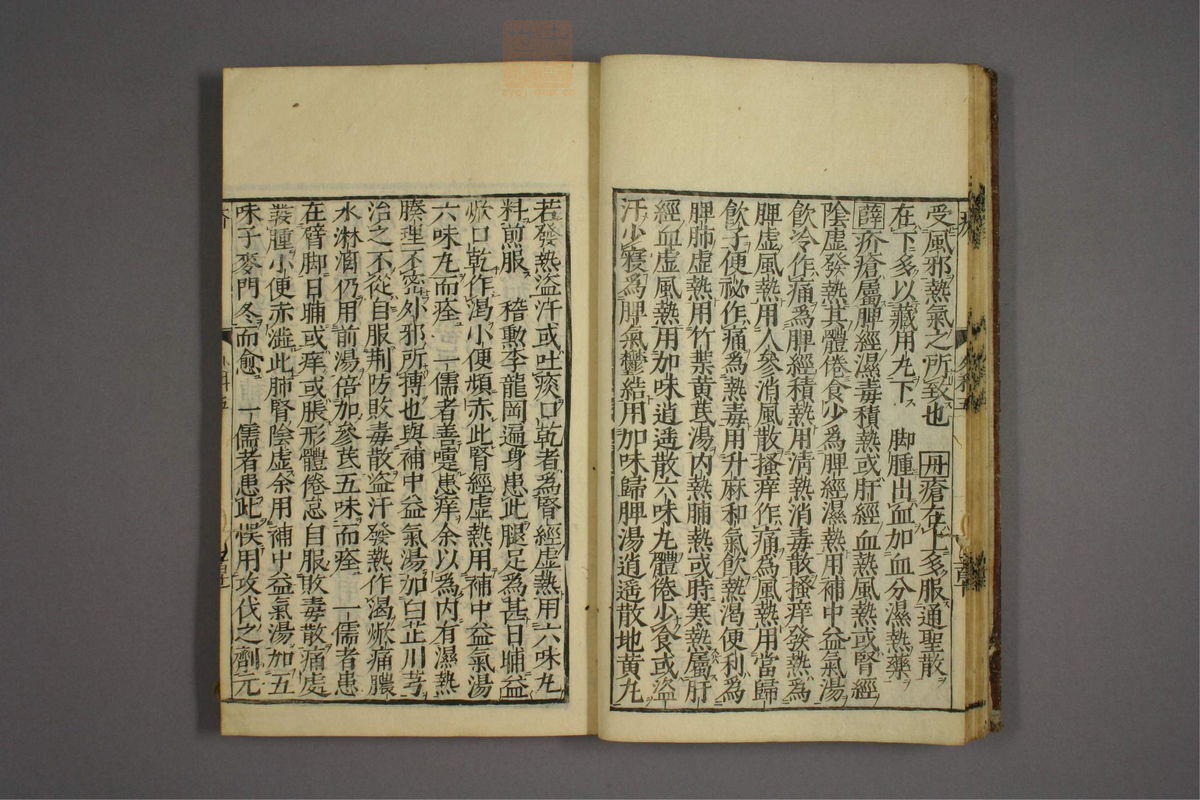 受風邪熱氣之所致也　丹瘡在上多服通聖散
在下多以藏用丸下　脚腫出血加血分濕熱藥
薛疥瘡屬脾經濕毒積熱或肝經血熱風熱或腎經
陰虛發熱其體倦食少為脾經濕熱用補中益氣湯
飲冷作痛為脾經積熱用清熱消毒散搔痒發熱為
脾虛風熱用人參消風散搔痒作痛為風熱用當歸
飲子便祕作痛為熱毒用升麻和氣飲熱渴便利為
脾肺虛熱用竹葉黃芪湯內熱晡熱或時寒熱屬肝
經血虛風熱用加味逍遥散六味丸體倦少食或盜
汗少寢為脾氣鬱結用加味歸脾湯逍遥散地黃丸
若發熱盜汗或吐痰口乾者為腎經虛熱用六味丸
料煎服　稽勳李龍岡遍身患此腿足為甚日晡益
焮口乾作渴小便頻赤此腎經虛熱用補中益氣湯
六味丸而痊　一儒者善噯患痒余以為內有濕熱
腠理不密外邪所搏也與補中益氣湯加白芷川芎
治之不從自服荆防敗毒散盜汗發熱作渴焮痛膿
水淋漓仍用前湯倍加參芪五味而痊　一儒者患
在臂脚日晡或痒或脹形體倦怠自服敗毒散痛處
發腫小便赤澁此肺腎陰虛余用補中益氣湯加五
味子麥門冬而愈　一儒者患此悞用攻伐之劑元